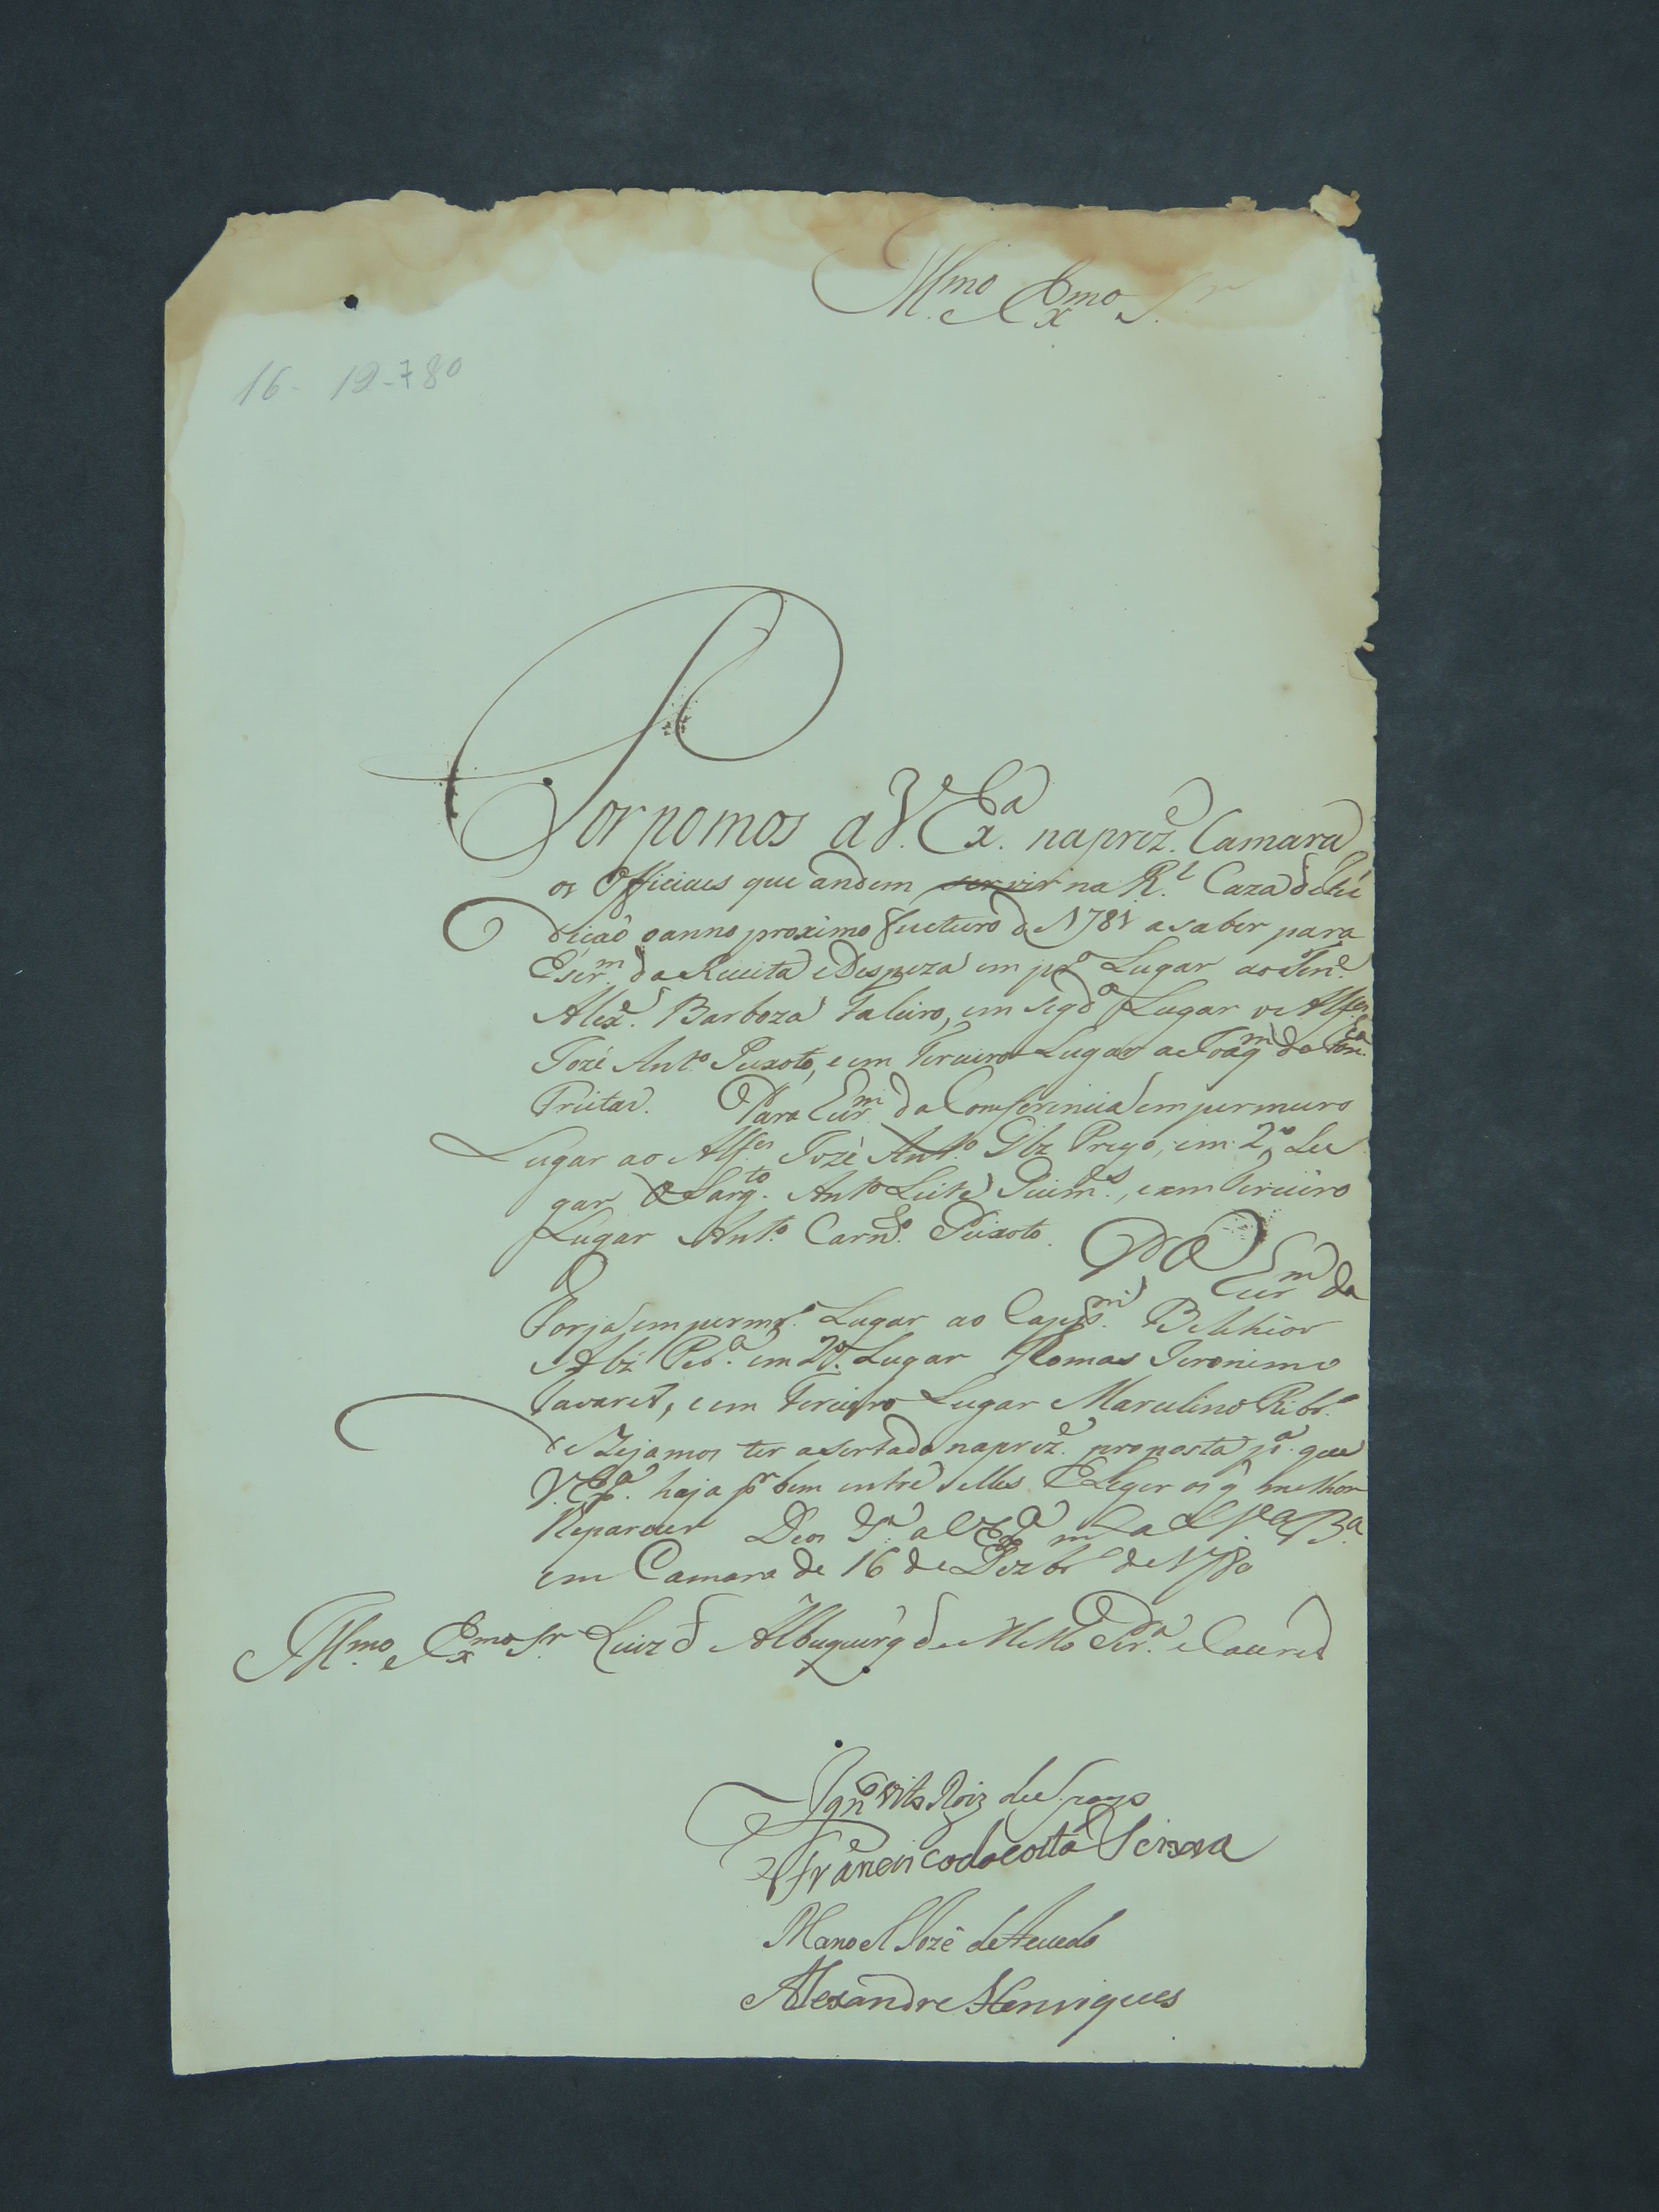 Illmo. e Exmo. Sr.
16 - 12 - 780
Porpomos a V. Exa. na prez.e Camara
os Officiaes que andem servir na R.l Caza de
dicaõ o anno proximo fucturo de 1781 a saber para
Escr.m da Receita e Despeza em pr.o Lugar ao Ten.e
Alex.e Barboza Faleiro, em segd.o Lugar o Alfes.
Jozé Ant.o Peixoto, e em Terceiro Lugar a Joaq.m da
Freitas. Para Escr.m da Conferencia em permeiro
Lugar ao Alf.es Jozè Ant.o Glz Prego, em 2.o Lu
gar o Sarg.to Ant.o Leite Guim.es, e em Terceiro
Lugar Ant.o Carn.ro Peixoto. Pa Escr.m da
Forja em permr.o Lugar ao Cap.m Belchior
em 2.o Lugar Thomas Jeronimo
Tavares, e em Terceiro Lugar Marcelino Ribr.o
dezejamos ter asertado na prez.e proposta p.a que
V. Ex.a haja p.r bem entre elles Eleger os q melhor
lhe parecer Deos G.e a V Ex.a m.s a.s V.a B.a
em Camara de 16 de Dezbr.o de 1780
Illmo. e Exmo. Sr. Luiz d Albuquerq de Mello Per.a e Caceres
Ign.o
Francisco da Costa Teixeira
Manoel Jozê de Azevedo
Alexandre Henriques